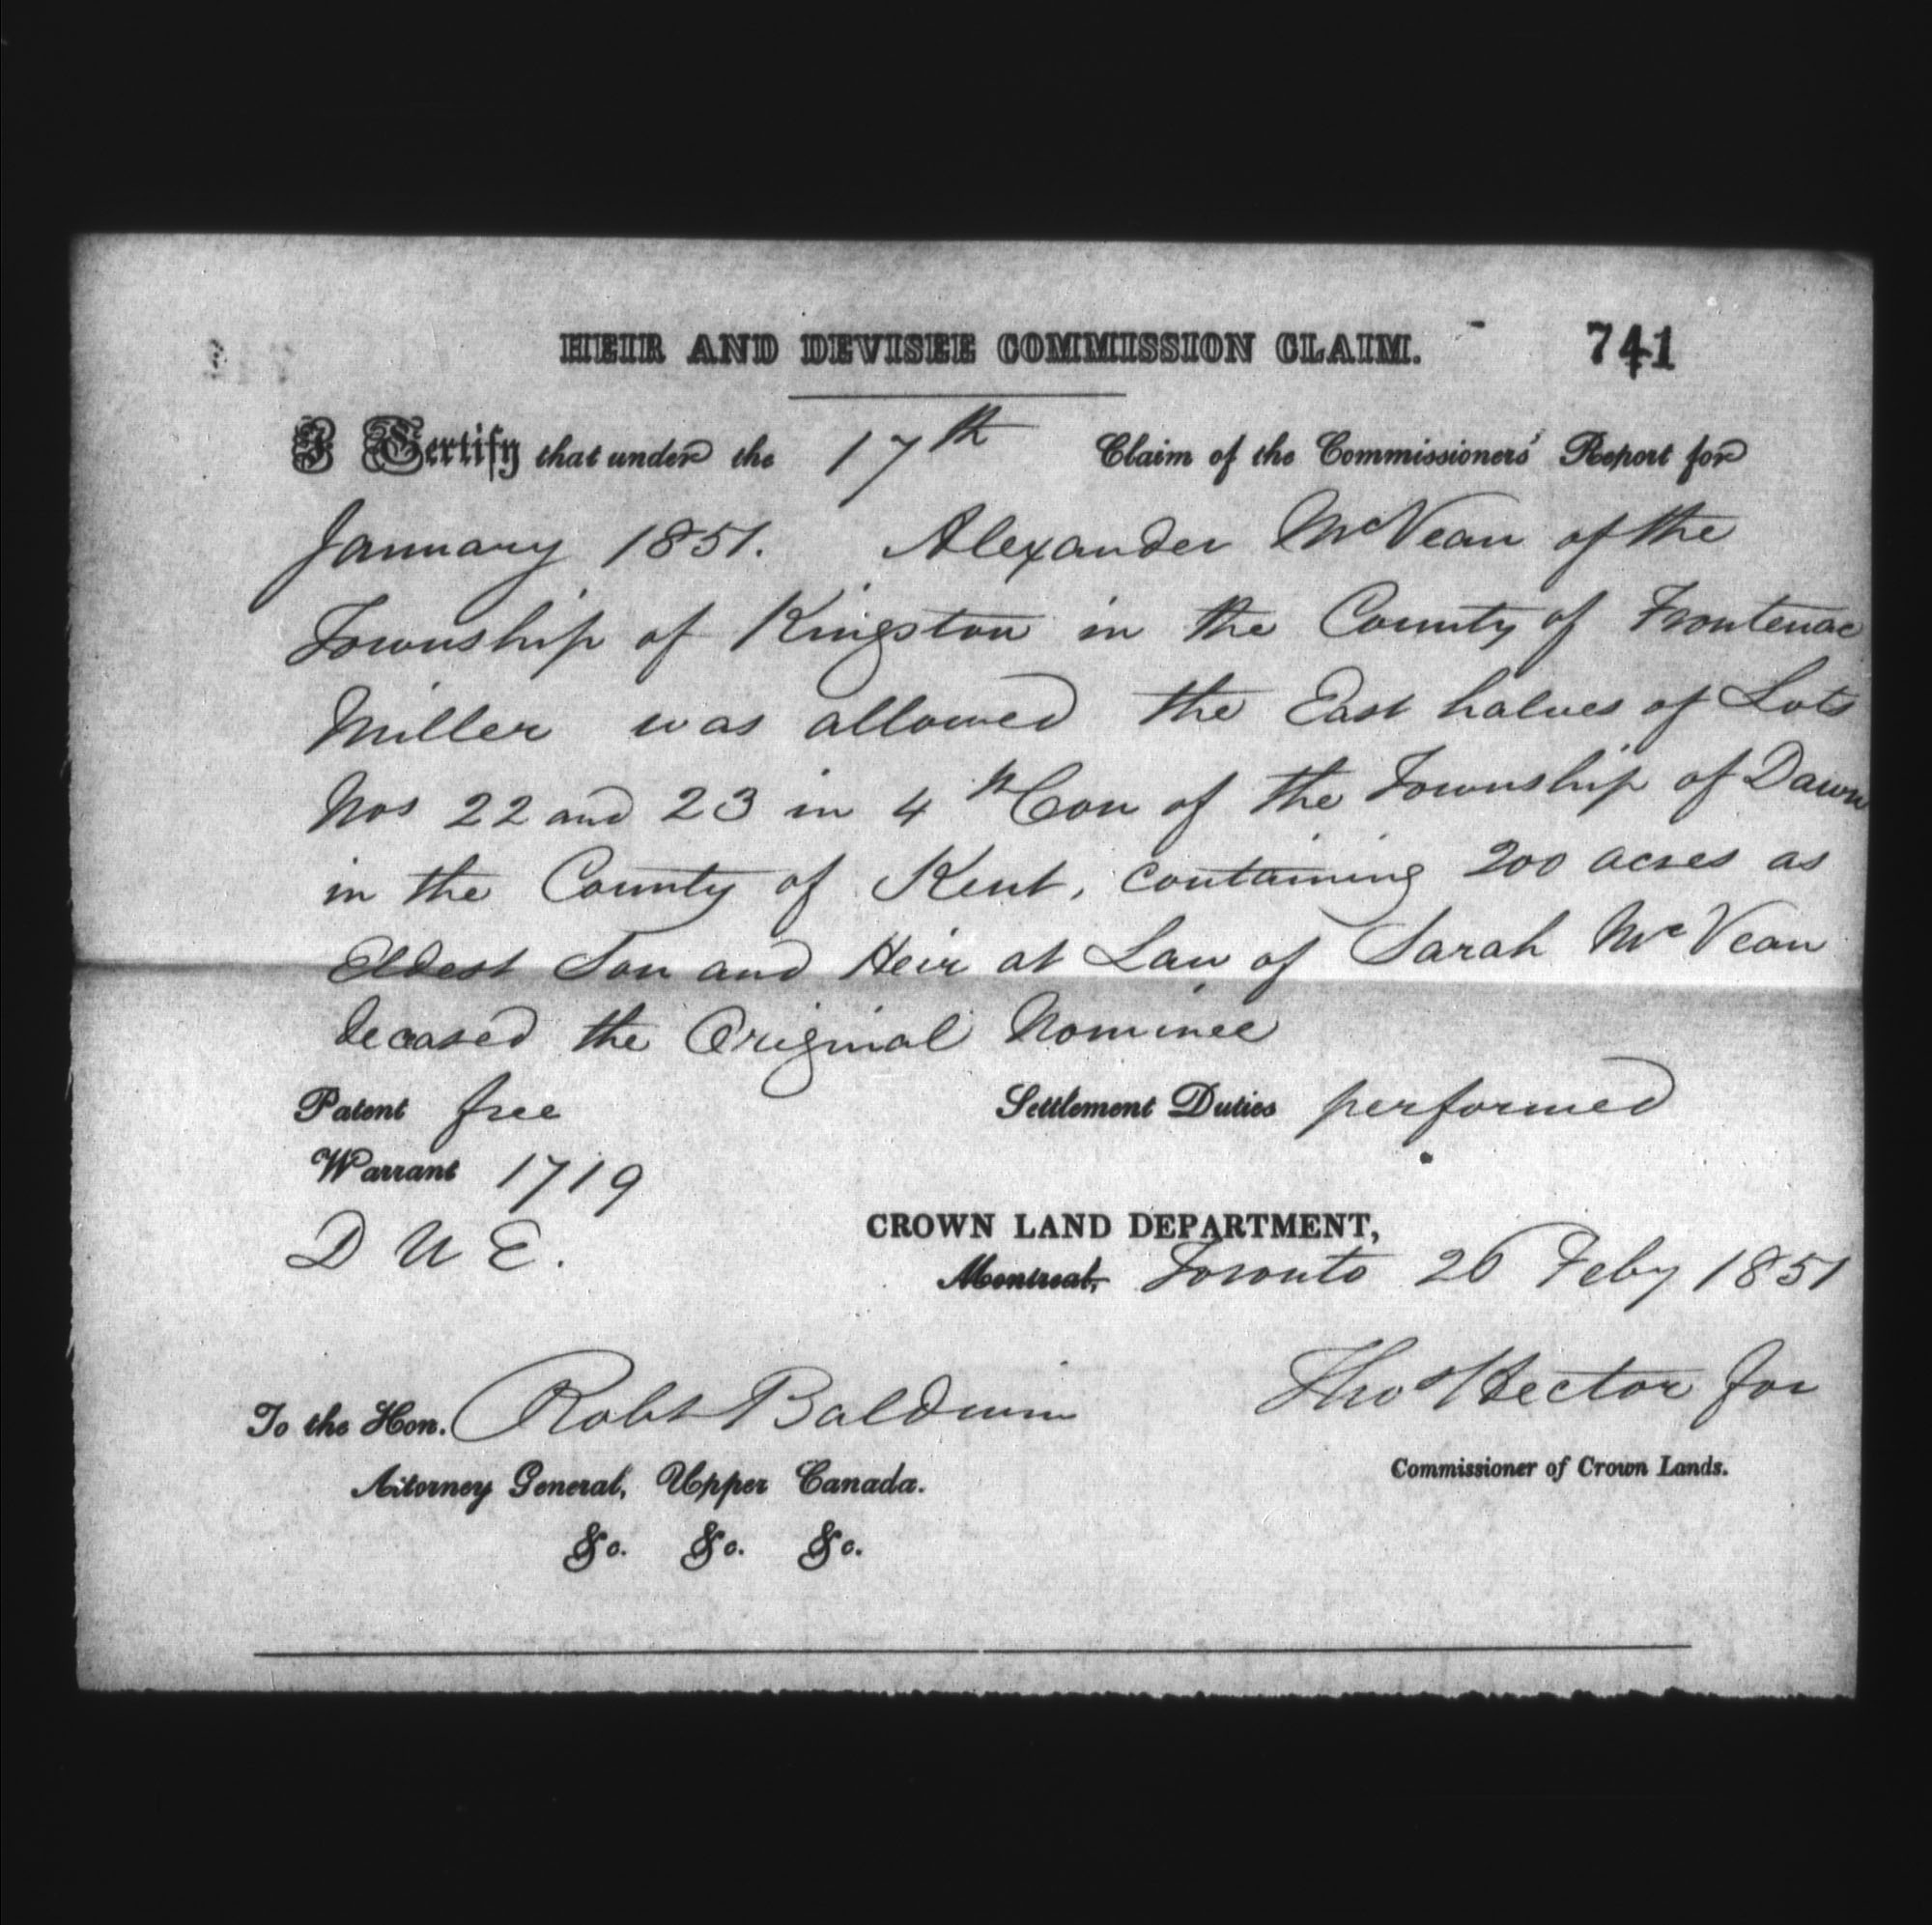 HEIR AND DEVISEE COMMISSION CLAIM. 741
I Certify that under the 17th Claim of the Commissioners' Report for
January 1851. Alexander McVean of the
Township of Kingston in the County of Frontenac
Miller was allowed the East halves of Lots
Nos 22 and 23 in 4th Con of the Township of Dawn
in the County of Kent, containing 200 acres as
Eldest Son and Heir at Law of Sarah McVean
deceased the Original Nominee
Patent free Settlement Duties performed
Warrant 1719
D U E.
CROWN LAND DEPARTMENT,
Montreal, Toronto 26 Feby 1851
To the Hon. Robt Baldwin Thos Hector for
Attorney General, Upper Canada. Commissioner of Crown Lands.
&c. &c. &c.